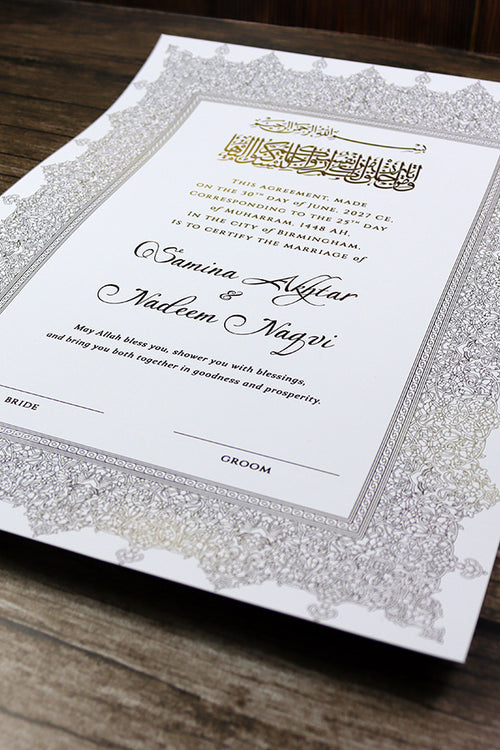 بسم الله الرحمن الرحيم
THIS AGREEMENT, MADE
ON THE 30TH DAY OF JUNE, 2027 CE,
CORRESPONDING TO THE 25TH DAY
OF MUHARRAM, 1448 AH,
IN THE CITY OF BIRMINGHAM,
IS TO CERTIFY THE MARRIAGE OF
Samina Akhtar
&
Nadeem Naqvi
May Allah bless you, shower you with blessings,
and bring you both together in goodness and prosperity.
BRIDE
GROOM